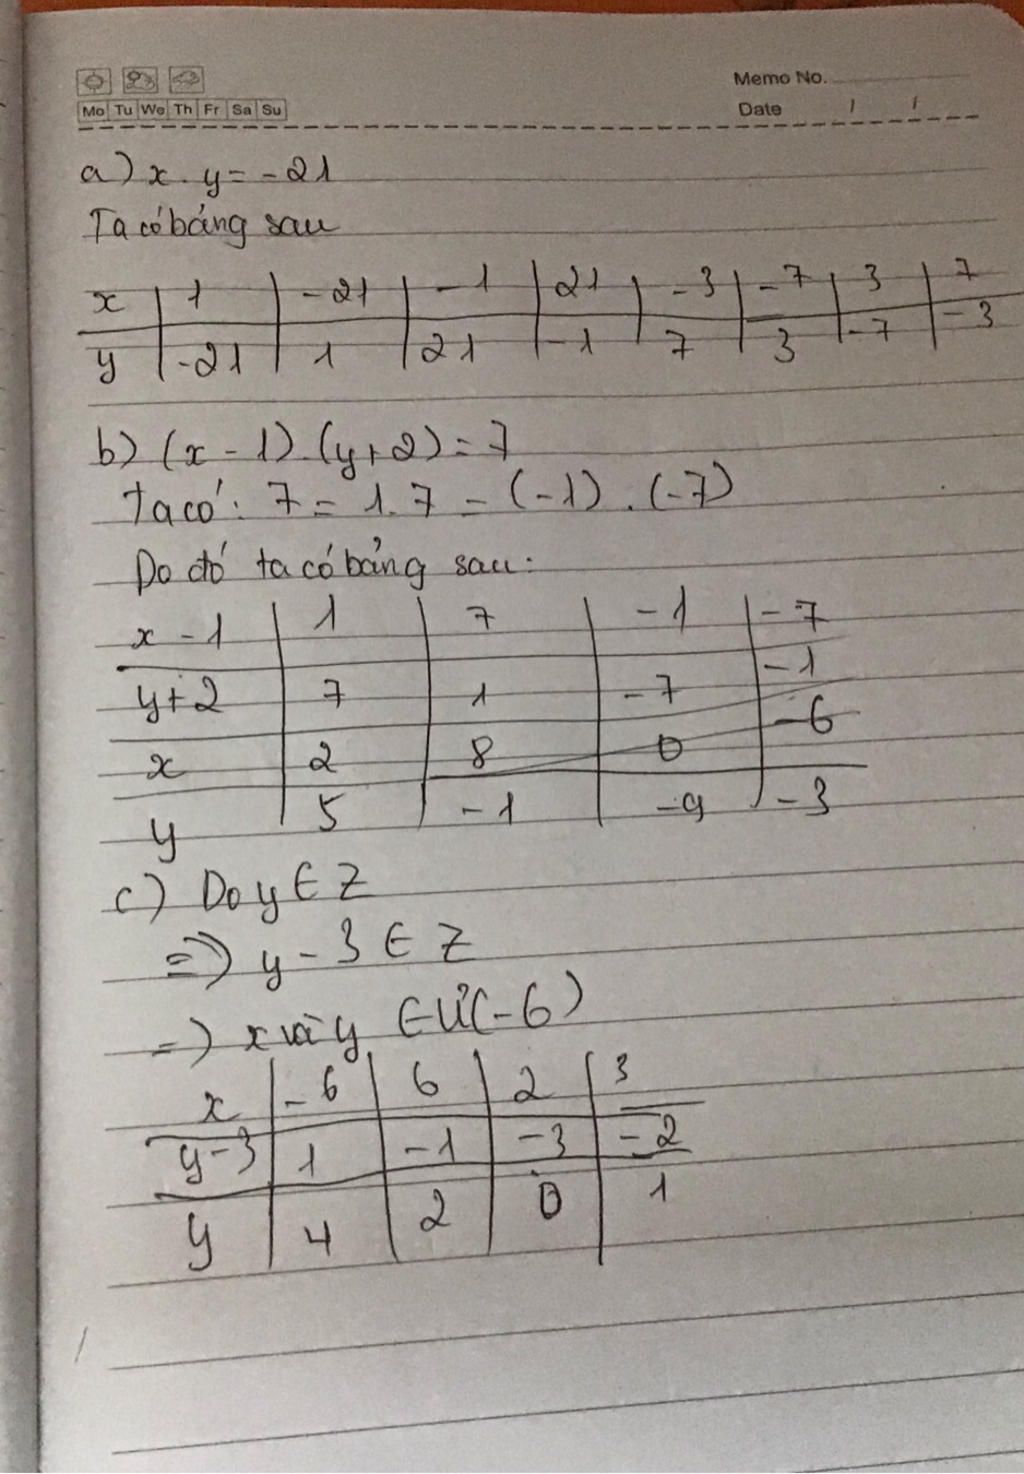 Memo No.
Mo Tu We Th Fr Sa Su
Date / /
a) x. y = -21
Ta có bảng sau
x | 1 | -21 | -1 | 21 | -3 | -7 | 3 | 7
y | -21 | 1 | 21 | -1 | 7 | 3 | -7 | -3
b) (x - 1).(y+2) = 7
Ta có: 7 = 1.7 = (-1).(-7)
Do đó ta có bảng sau:
x - 1 | 1 | 7 | -1 | -7
y+2 | 7 | 1 | -7 | -1
x | 2 | 8 | 0 | -6
y | 5 | -1 | -9 | -3
c) Do y ∈ Z
=> y - 3 ∈ Z
=> x và y ∈ Ư(-6)
x | -6 | 6 | 2 | 3
y-3 | 1 | -1 | -3 | -2
y | 4 | 2 | 0 | 1